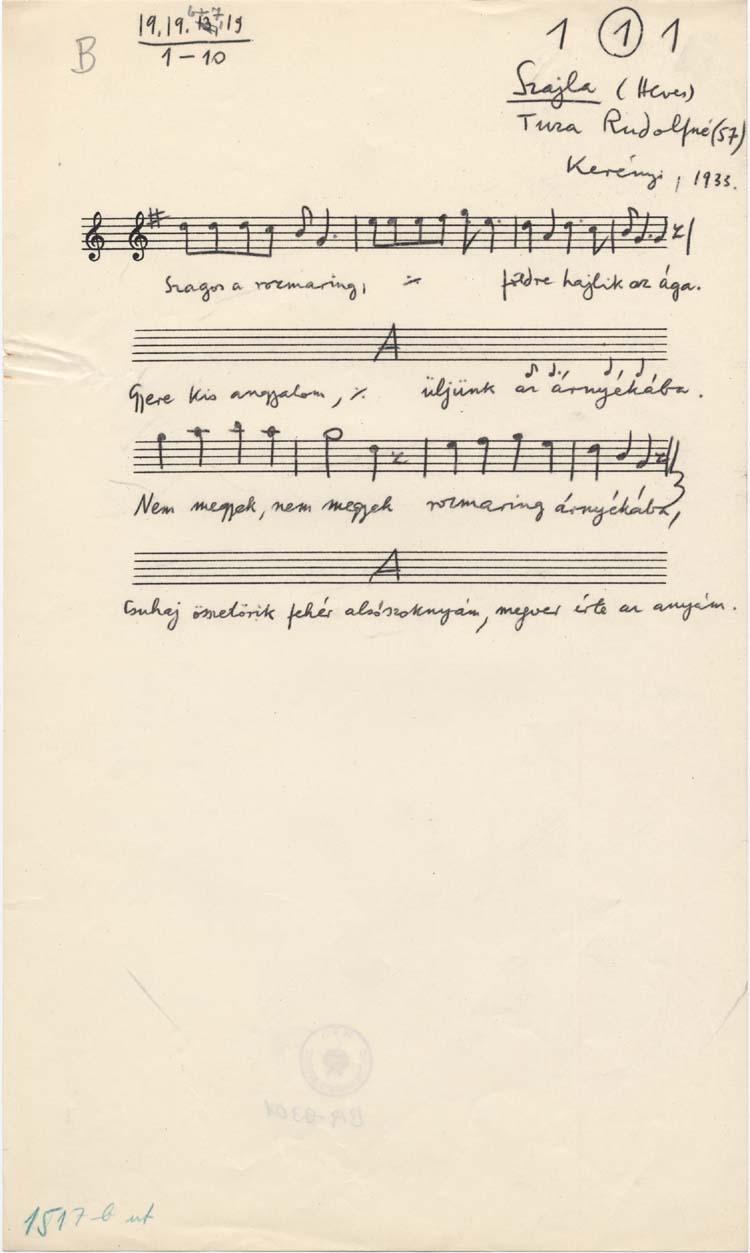 B
19, 19. 6+7 19
1–10
1 ① 1
Szajla (Heves)
Tuza Rudolfné (57)
Kerényi, 1933.
Szagos a rozmaring, ·/· földre hajlik az ága.
A
Gyere kis angyalom, ·/· üljünk az árnyékába.
Nem megyek, nem megyek rozmaring árnyékába,
A
Csuhaj össetörik fehér alsószoknyám, megver érte az anyám.
BR-0301
1517-b